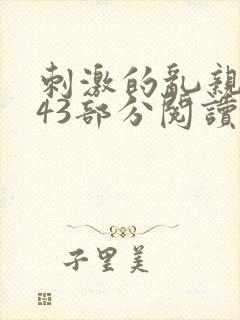 刺激的亂親
43部分閱讀
子里美